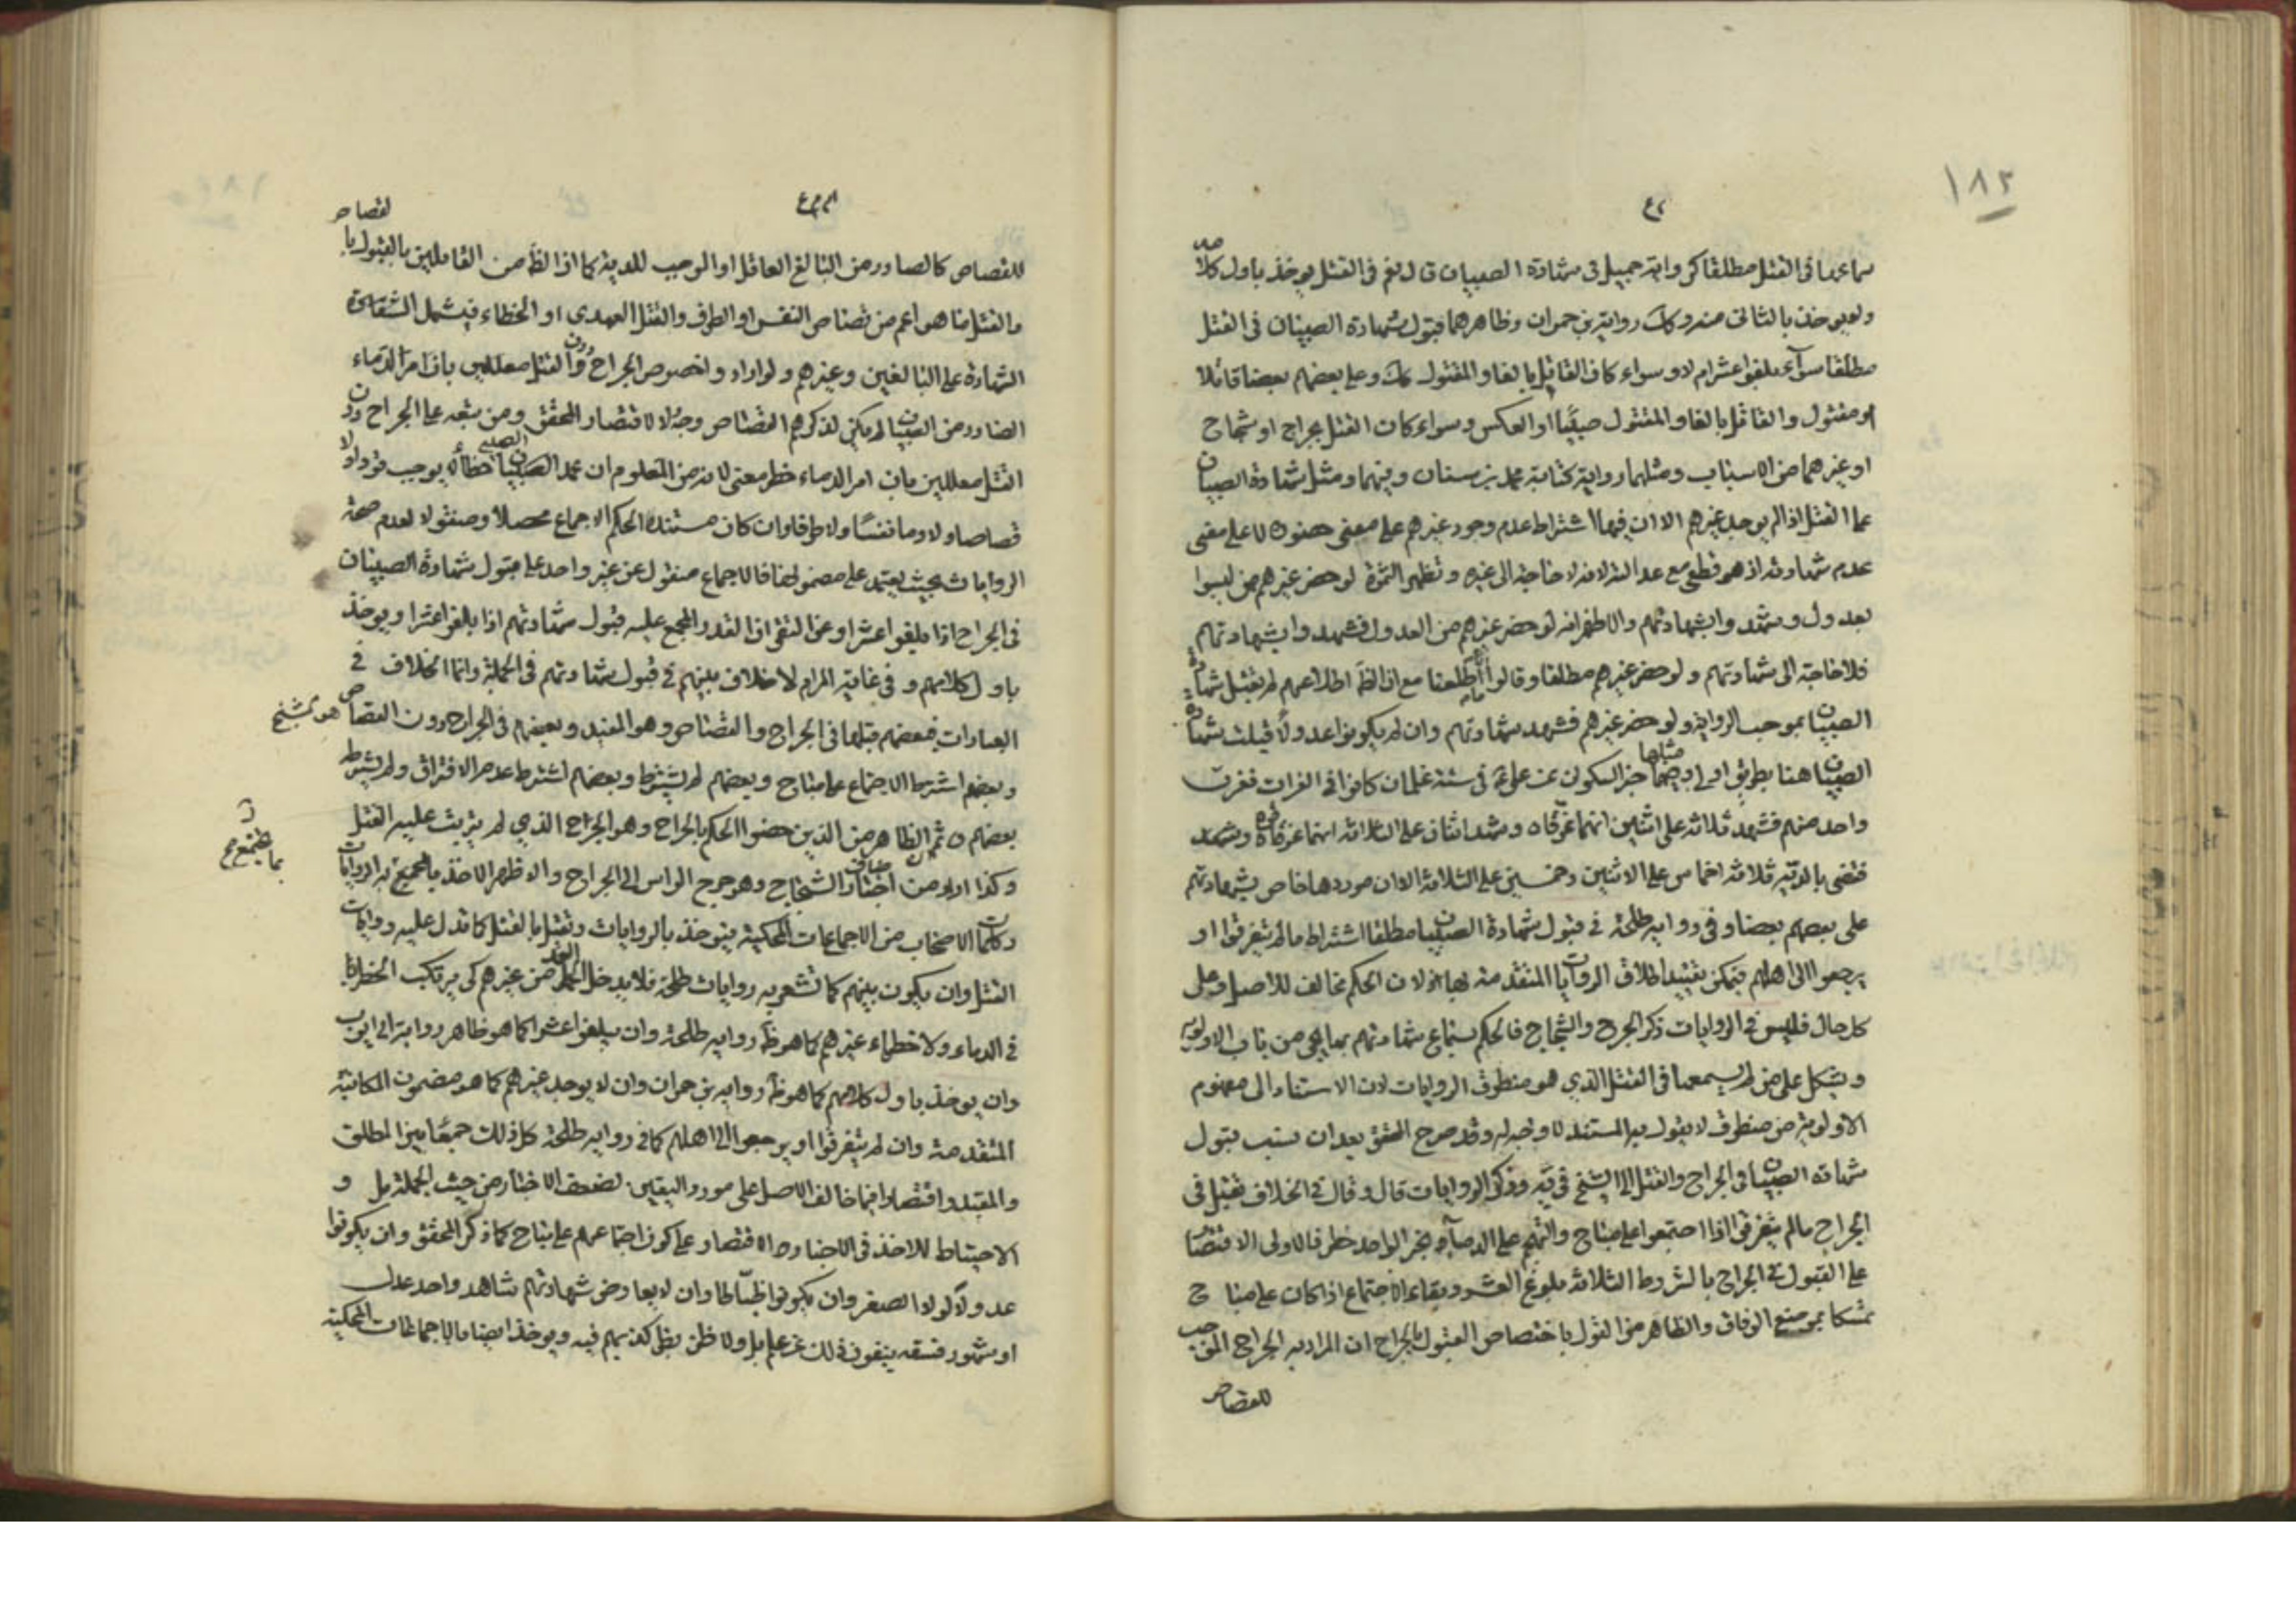 ١٨٢
سماعها في القتل مطلقا كرواية جميل في شهادة الصبيان قال نعم في القتل يوخذ باول كلامه
ولا يوخذ بالثاني منه وكك رواية بن حمران وظاهرهما قبول شهادة الصبيان في القتل
مطلقا سواء بلغوا عشرا ام لا وسواء كان القاتل بالغا والمقتول كك وعلى بعضهم بعضا قاتلا
او مقتول والقاتل بالغا والمقتول صبيا او العكس وسواء كان القتل بجراح او شجاج
او غيرهما من الاسباب ومثلهما رواية كتابة محمد بن سنان وفيها ومثل شهادة الصبيان
على القتل اذا لم يوجد غيرهم الا ان فيها اشتراط عدم وجود غيرهم على معنى حضوره لا على معنى
عدم شهادته اذ هو قطعي مع عدالته لانه لا حاجة الى غيره وتظهر الثمرة لو حضر غيرهم ممن ليسوا
بعدول وشهدوا بشهادتهم والاظهر انه لو حضر غيرهم من العدول فشهدوا بشهادتهم
فلا حاجة الى شهادتهم ولو حضر غيرهم مطلقا وقالوا ما اطلعنا مع ان الظ اطلاعهم لم تقبل شهادة
الصبيان بموجب الرواية ولو حضر غيرهم فشهد بشهادتهم وان لم يكونوا عدولا قبلت شهادة
الصبيان هنا بطريق اولى ومثلها خبر السكوني عن علي ع في ستة غلمان كانوا في الفرات فغرق
واحد منهم فشهد ثلاثة على اثنين انهما غرقاه وشهد اثنان على الثلاثة انهم غرقوه وشهد
فقضى بالدية ثلاثة اخماس على الاثنين وخمسين على الثلاثة الا ان موردها خاص بشهادتهم
على بعضهم بعضا وفي رواية طلحة في قبول شهادة الصبيان مطلقا اشتراط ما لم يتفرقوا او
يرجعوا الى اهلهم فيمكن تقييد اطلاق الروايات المتقدمة بها اذ لان الحكم مخالف للاصل وعلى
كل حال فليس في الروايات ذكر الجرح والشجاج فالحكم بسماع شهادتهم بها هي من باب الاولوية
ويشكل على من لم يسمعها في القتل الذي هو منطوق الروايات لان الاستناد الى مفهوم
الاولوية من منطوق لا يقول به المستند لا وجه له وقد صرح المحقق بعد ان نسب قبول
شهادة الصبيان في الجراح والقتل الى الشيخ في يه وذكر الروايات قال وقال في الخلاف تقبل في
الجراح ما لم يتفرقوا اذا اجتمعوا على مباح والتهجم على الدماء بخبر الواحد خطر فالاولى الاقتصار
على القبول في الجراح بالشروط الثلاثة بلوغ العشر وبقاء الاجتماع اذا كان على مباح
تمسكا بموضع الوفاق والظاهر من القول باختصاص القبول بالجراح ان المراد به الجراح الموجب
للقصاص
للقصاص كالصادر من البالغ العاقل او الموجب للدية كما اذا الظ من القائلين بالقبول بالقصاص
والقتل منا هو اعم من قصاص النفس او الطرف والقتل العمدي او الخطاء فيشمل الشقاق
الشهادة على البالغين وغيرهم ولو اراد وا خصوص الجراح دون القتل معللين بان امر الدماء
الصادر من الصبيان لم يكن لذكرهم القصاص وجه لا لاقتصار المحقق ومن تبعه على الجراح دون
القتل معللين بان امر الدماء خطر معنى لانه من المعلوم ان عمد الصبي خطأ لا يوجب قودا ولا
قصاصا ولا دما نفسا ولا طرفا وان كان مستند الحكم الاجماع محصلا ومنقولا لعدم صحة
الروايات بحيث يعتمد على مضمونها فالاجماع منقول عن غير واحد على قبول شهادة الصبيان
في الجراح اذا بلغوا عشرا وعن التقي ان القدر المجمع عليه قبول شهادتهم اذا بلغوا عشرا ويوخذ
باول كلامهم وفي غاية المرام لا خلاف بينهم في قبول شهادتهم في الجملة وانما الخلاف في
العبارات فبعضهم قبلها في الجراح والقصاص وهو المفيد وبعضهم في الجراح دون القصاص هو الشيخ
وبعضهم اشترط الاجتماع على مباح وبعضهم لم يشترط وبعضهم اشترط عدم الافتراق ولم يشترط
بعضهم ثم الظاهر من الذين خصوا الحكم بالجراح وهو الجراح الذي لم يترتب عليه القتل
وكذا اريد من الشجاج وهو جرح الراس الى الجراح والاظهر الاخذ بالجميع به الروايات
وكلمات الاصحاب من الاجماعات المحكية فيوخذ بالروايات وتقبل بالقتل كما تدل عليه روايات
القتل وان يكون بينهم كما تشعر به روايات طلحة فلا يدخل من غيرهم كي يرتكب الخطر
في الدماء ولا خطاء غيرهم كما هو ظ رواية طلحة وان يبلغوا عشرا كما هو ظاهر رواية ابي ايوب
وان يوخذ باول كلامهم كما هو ظ رواية بن حمران وان لا يوجد غيرهم كما هو مضمون المكاتبة
المتقدمة وان لم يتفرقوا او يرجعوا الى اهلهم كما في رواية طلحة كل ذلك جمعا بين المطلق
والمقيد واقتصارا فيما خالف الاصل على مورد اليقين لضعف الاخبار من حيث الجملة بل و
الاحتياط للاخذ في الاخبار والاقتصار على كون اجتماعهم على مباح كما ذكر المحقق وان يكونوا
عدولا لولا الصغر وان يكونوا ضباطا وان لا يعارض شهادتهم شاهد واحد عدل
او مشهور فسقه ينفون ذلك عن علم بل ولا ظن بظن كذبهم فيه ويوخذ ايضا بالاجماعات المحكية